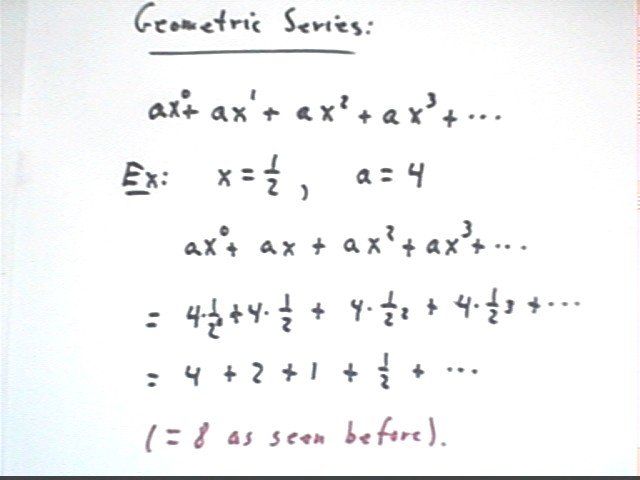 Geometric Series:
ax⁰ + ax¹ + ax² + ax³ + ...
Ex: x = 1/2, a = 4
ax⁰ + ax + ax² + ax³ + ...
= 4·1/2⁰ + 4·1/2 + 4·1/2² + 4·1/2³ + ...
= 4 + 2 + 1 + 1/2 + ...
(= 8 as seen before).